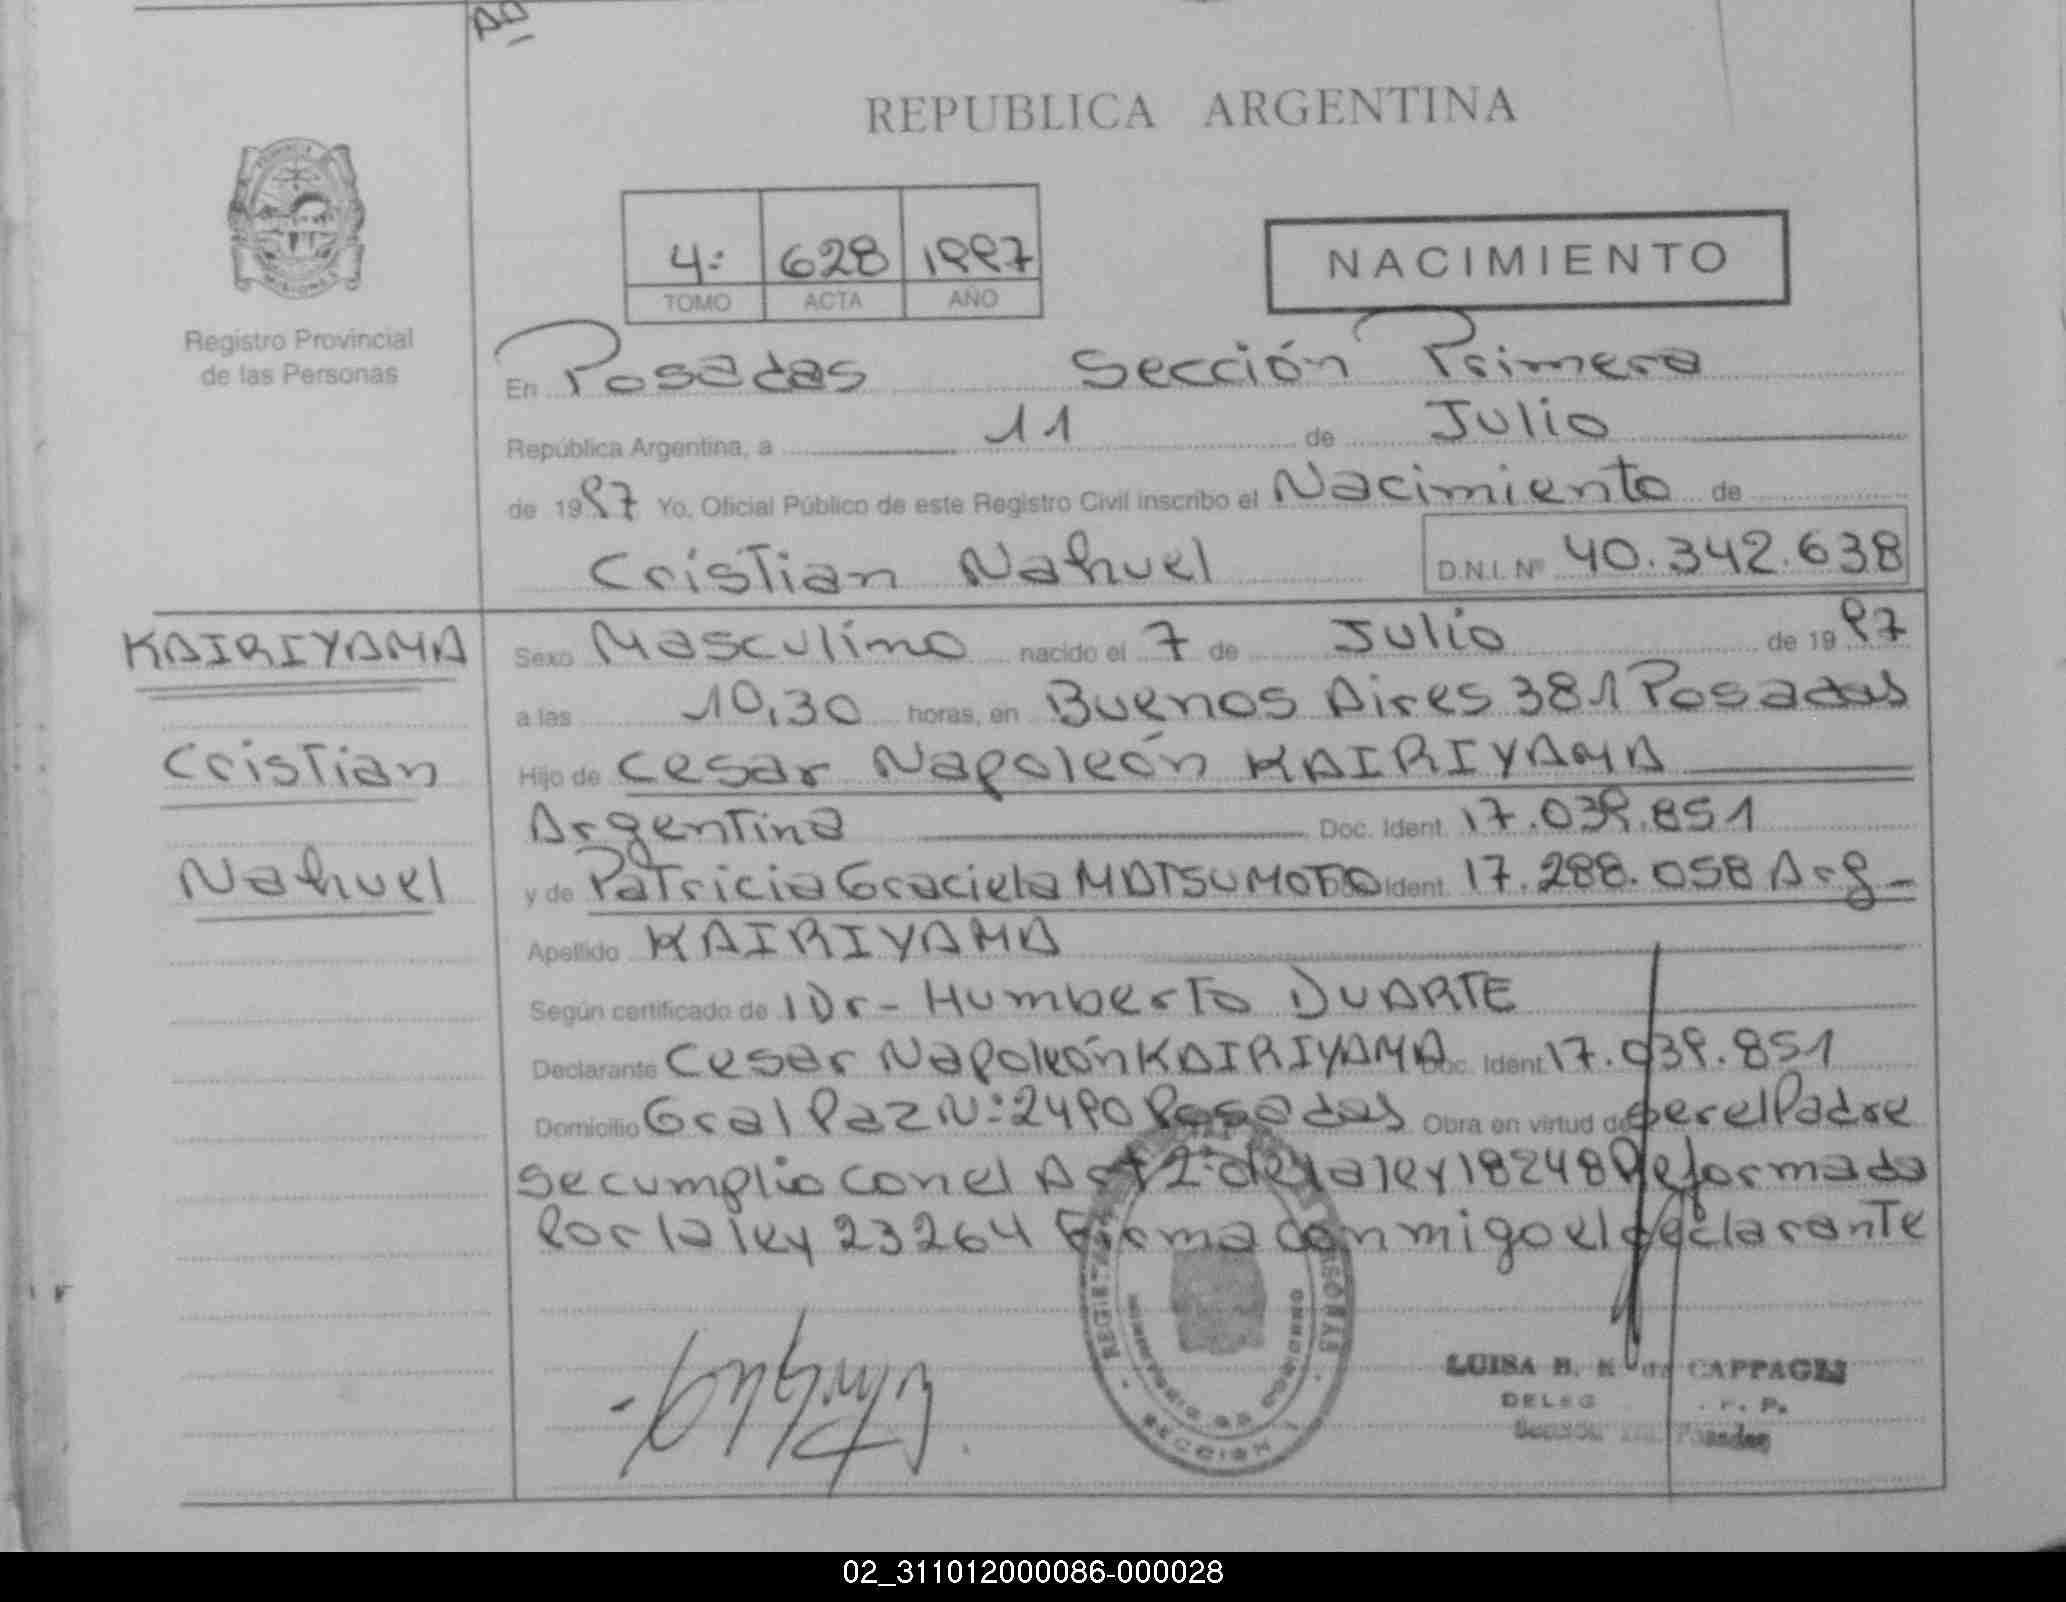 REPUBLICA ARGENTINA
4: 628 1997
TOMO ACTA AÑO
NACIMIENTO
Registro Provincial
de las Personas
En Posadas Sección Primera
República Argentina, a 11 de Julio
de 1997 Yo, Oficial Público de este Registro Civil inscribo el Nacimiento de
Cristian Nahuel D.N.I. Nº 40.342.638
KAIRIYAMA
Cristian
Nahuel
Sexo Masculino nacido el 7 de Julio de 1997
a las 10,30 horas, en Buenos Aires 381 Posadas
Hijo de Cesar Napoleón KAIRIYAMA
Argentina Doc. Ident. 17.039.851
y de Patricia Graciela MATSUMOTO Ident. 17.288.058 Arg-
Apellido KAIRIYAMA
Según certificado de Dr- Humberto DUARTE
Declarante Cesar Napoleón KAIRIYAMA Doc. Ident. 17.039.851
Domicilio Gral Paz N: 2490 Posadas Obra en virtud de ser el Padre
se cumplio con el Art 2: de la ley 18248 Reformada
Por la ley 23264 Firma con migo el declarante
SECCION 1
LUISA B. K. de CAPPAGLI
02_311012000086-000028